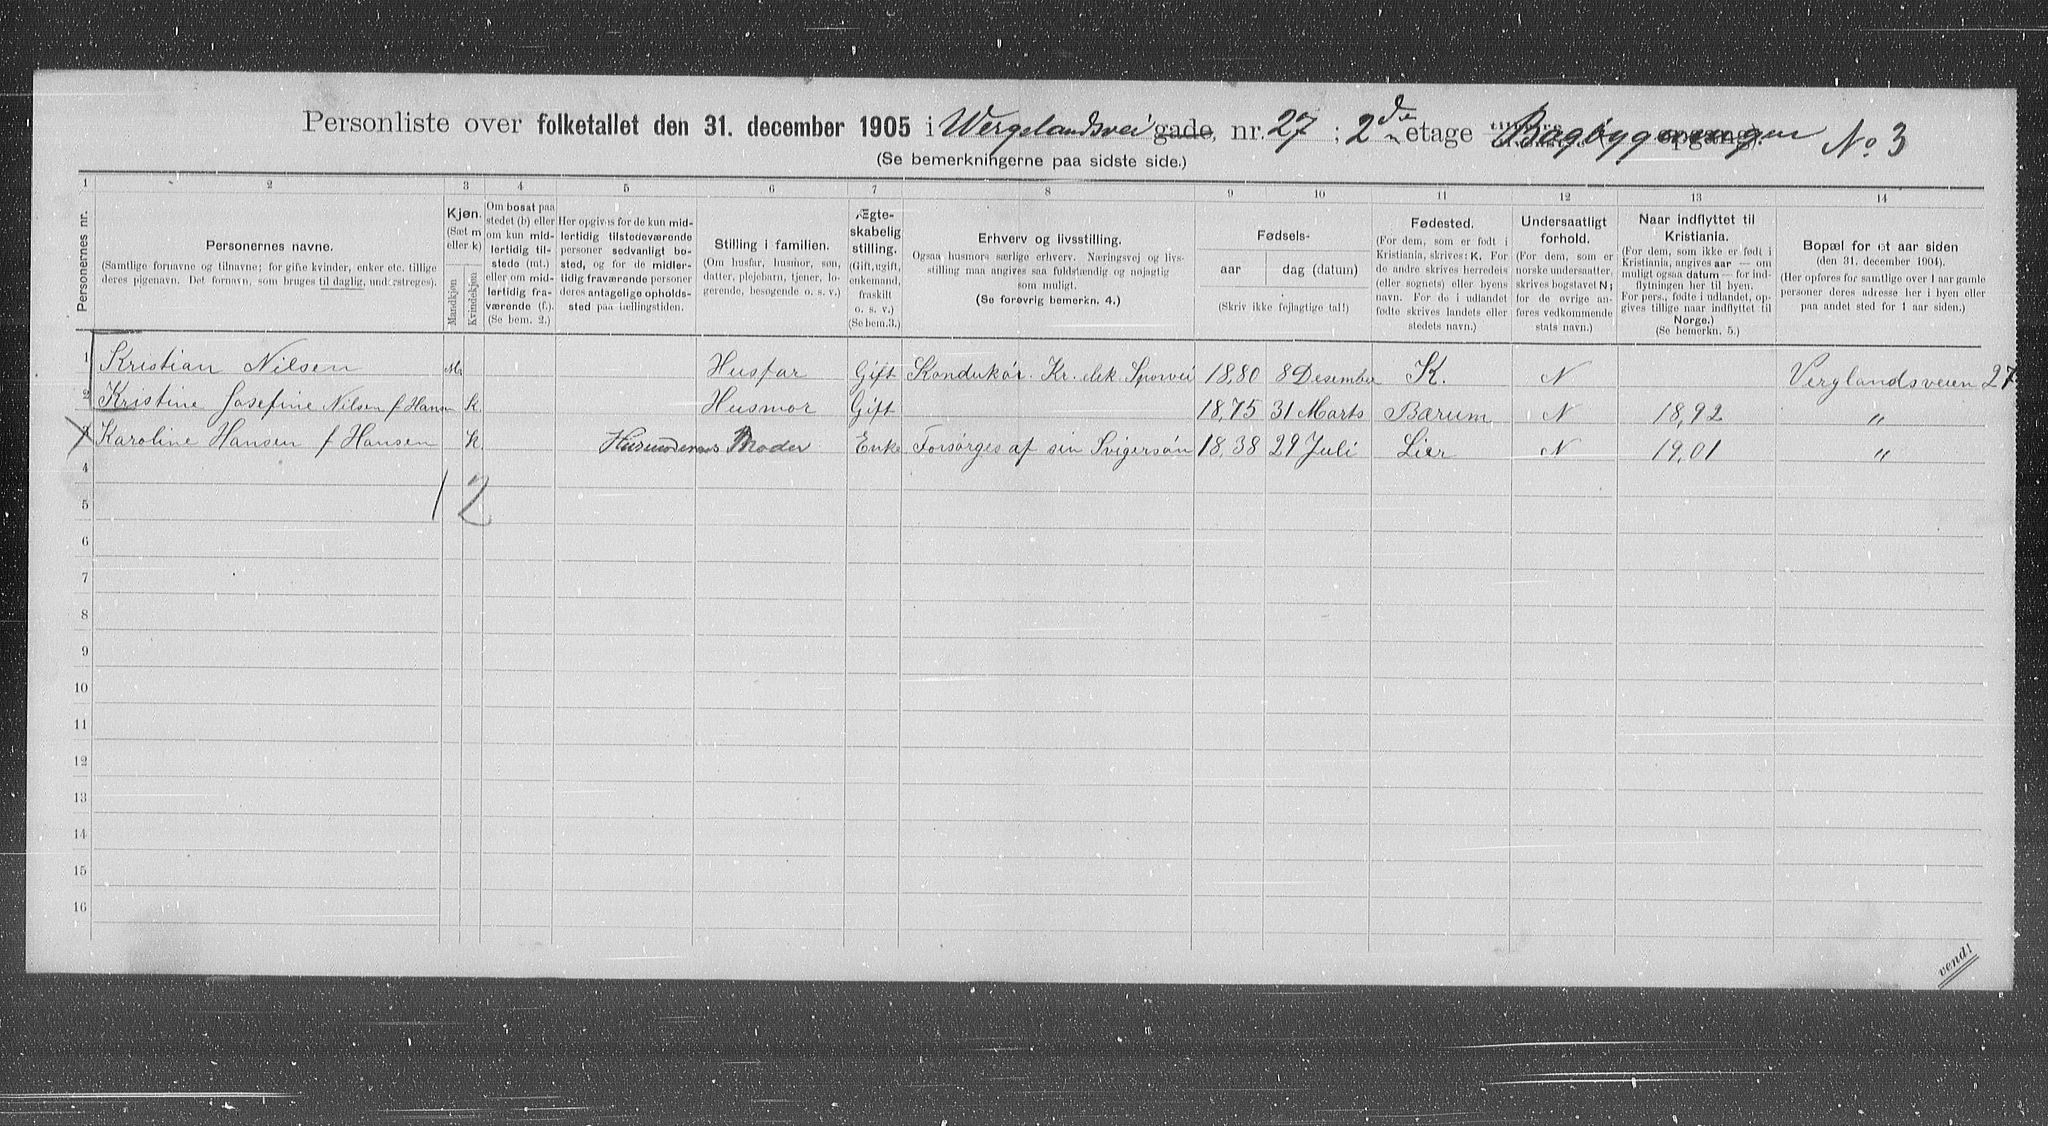 Personliste over folketallet den 31. december 1905 i Wergelandsvei gade, nr. 27 : 2den etage Bagbygningen No. 3
(Se bemerkningerne paa sidste side.)
1 2 3 4 5 6 7 8 9 10 11 12 13 14
Personernes nr.
Personernes navne.
(Samtlige fornavne og tilnavne; for gifte kvinder, enker etc. tillige
deres pigenavn. Det fornavn, som bruges til daglig, understreges).
Kjøn.
(Sæt m
eller k)
Mandkjøn
Kvindekjøn
Om bosat paa
stedet (b) eller
om kun mid-
lertidig til-
stede (mt.)
eller om mid-
lertidig fra-
værende (f.).
(Se bem. 2.)
Her opgives for de kun mid-
lertidig tilstedeværende
personer sedvanligt bo-
sted, og for de midler-
tidig fraværende personer
deres antagelige opholds-
sted paa tællingstiden.
Stilling i familien.
(Om husfar, husmor, søn,
datter, plejebarn, tjener, lo-
gerende, besøgende o. s. v.)
Ægte-
skabelig
stilling.
(Gift, ugift,
enkemand,
fraskilt
o. s. v.)
(Se bem.3.)
Erhverv og livsstilling.
Ogsaa husmors særlige erhverv. Næringsvej og livs-
stilling maa angives saa fuldstændig og nøjagtig
som muligt.
(Se forøvrig bemerkn. 4.)
Fødsels-
aar
dag (datum)
(Skriv ikke fejlagtige tal!)
Fødested.
(For dem, som er født i
Kristiania, skrives: K. For
de andre skrives herredets
(eller sognets) eller byens
navn. For de i udlandet
fødte skrives landets eller
stedets navn.)
Undersaatligt
forhold.
(For dem, som er
norske undersaatter,
skrives bogstavet N;
for de øvrige an-
føres vedkommende
stats navn.)
Naar indflyttet til
Kristiania.
(For dem, som ikke er født i
Kristiania, angives aar — om
muligt ogsaa datum — for ind-
flytningen her til byen.
For pers., fødte i udlandet, op-
gives tillige naar indflyttet til
Norge.)
(Se bemerkn. 5.)
Bopæl for et aar siden
(den 31. december 1904).
(Her opføres for samtlige over 1 aar gamle
personer deres adresse her i byen eller
paa andet sted for 1 aar siden.)
1 Kristian Nilsen M. Husfar Gift Kondukör. Kr. elek Sporvei 18,80 8 Desember K. N Verglandsveien 27
2 Kristine Josefine Nilsen f Hansen k. Husmor Gift 18,75 31 Marts Bærum N 18,92 "
3 Karoline Hansen f Hansen k. Husmoderens Moder Enke Forsørges af sin Svigersön 18,38 29 Juli Lier N 19,01 "
4
1 2
5
6
7
8
9
10
11
12
13
14
15
16
vend!